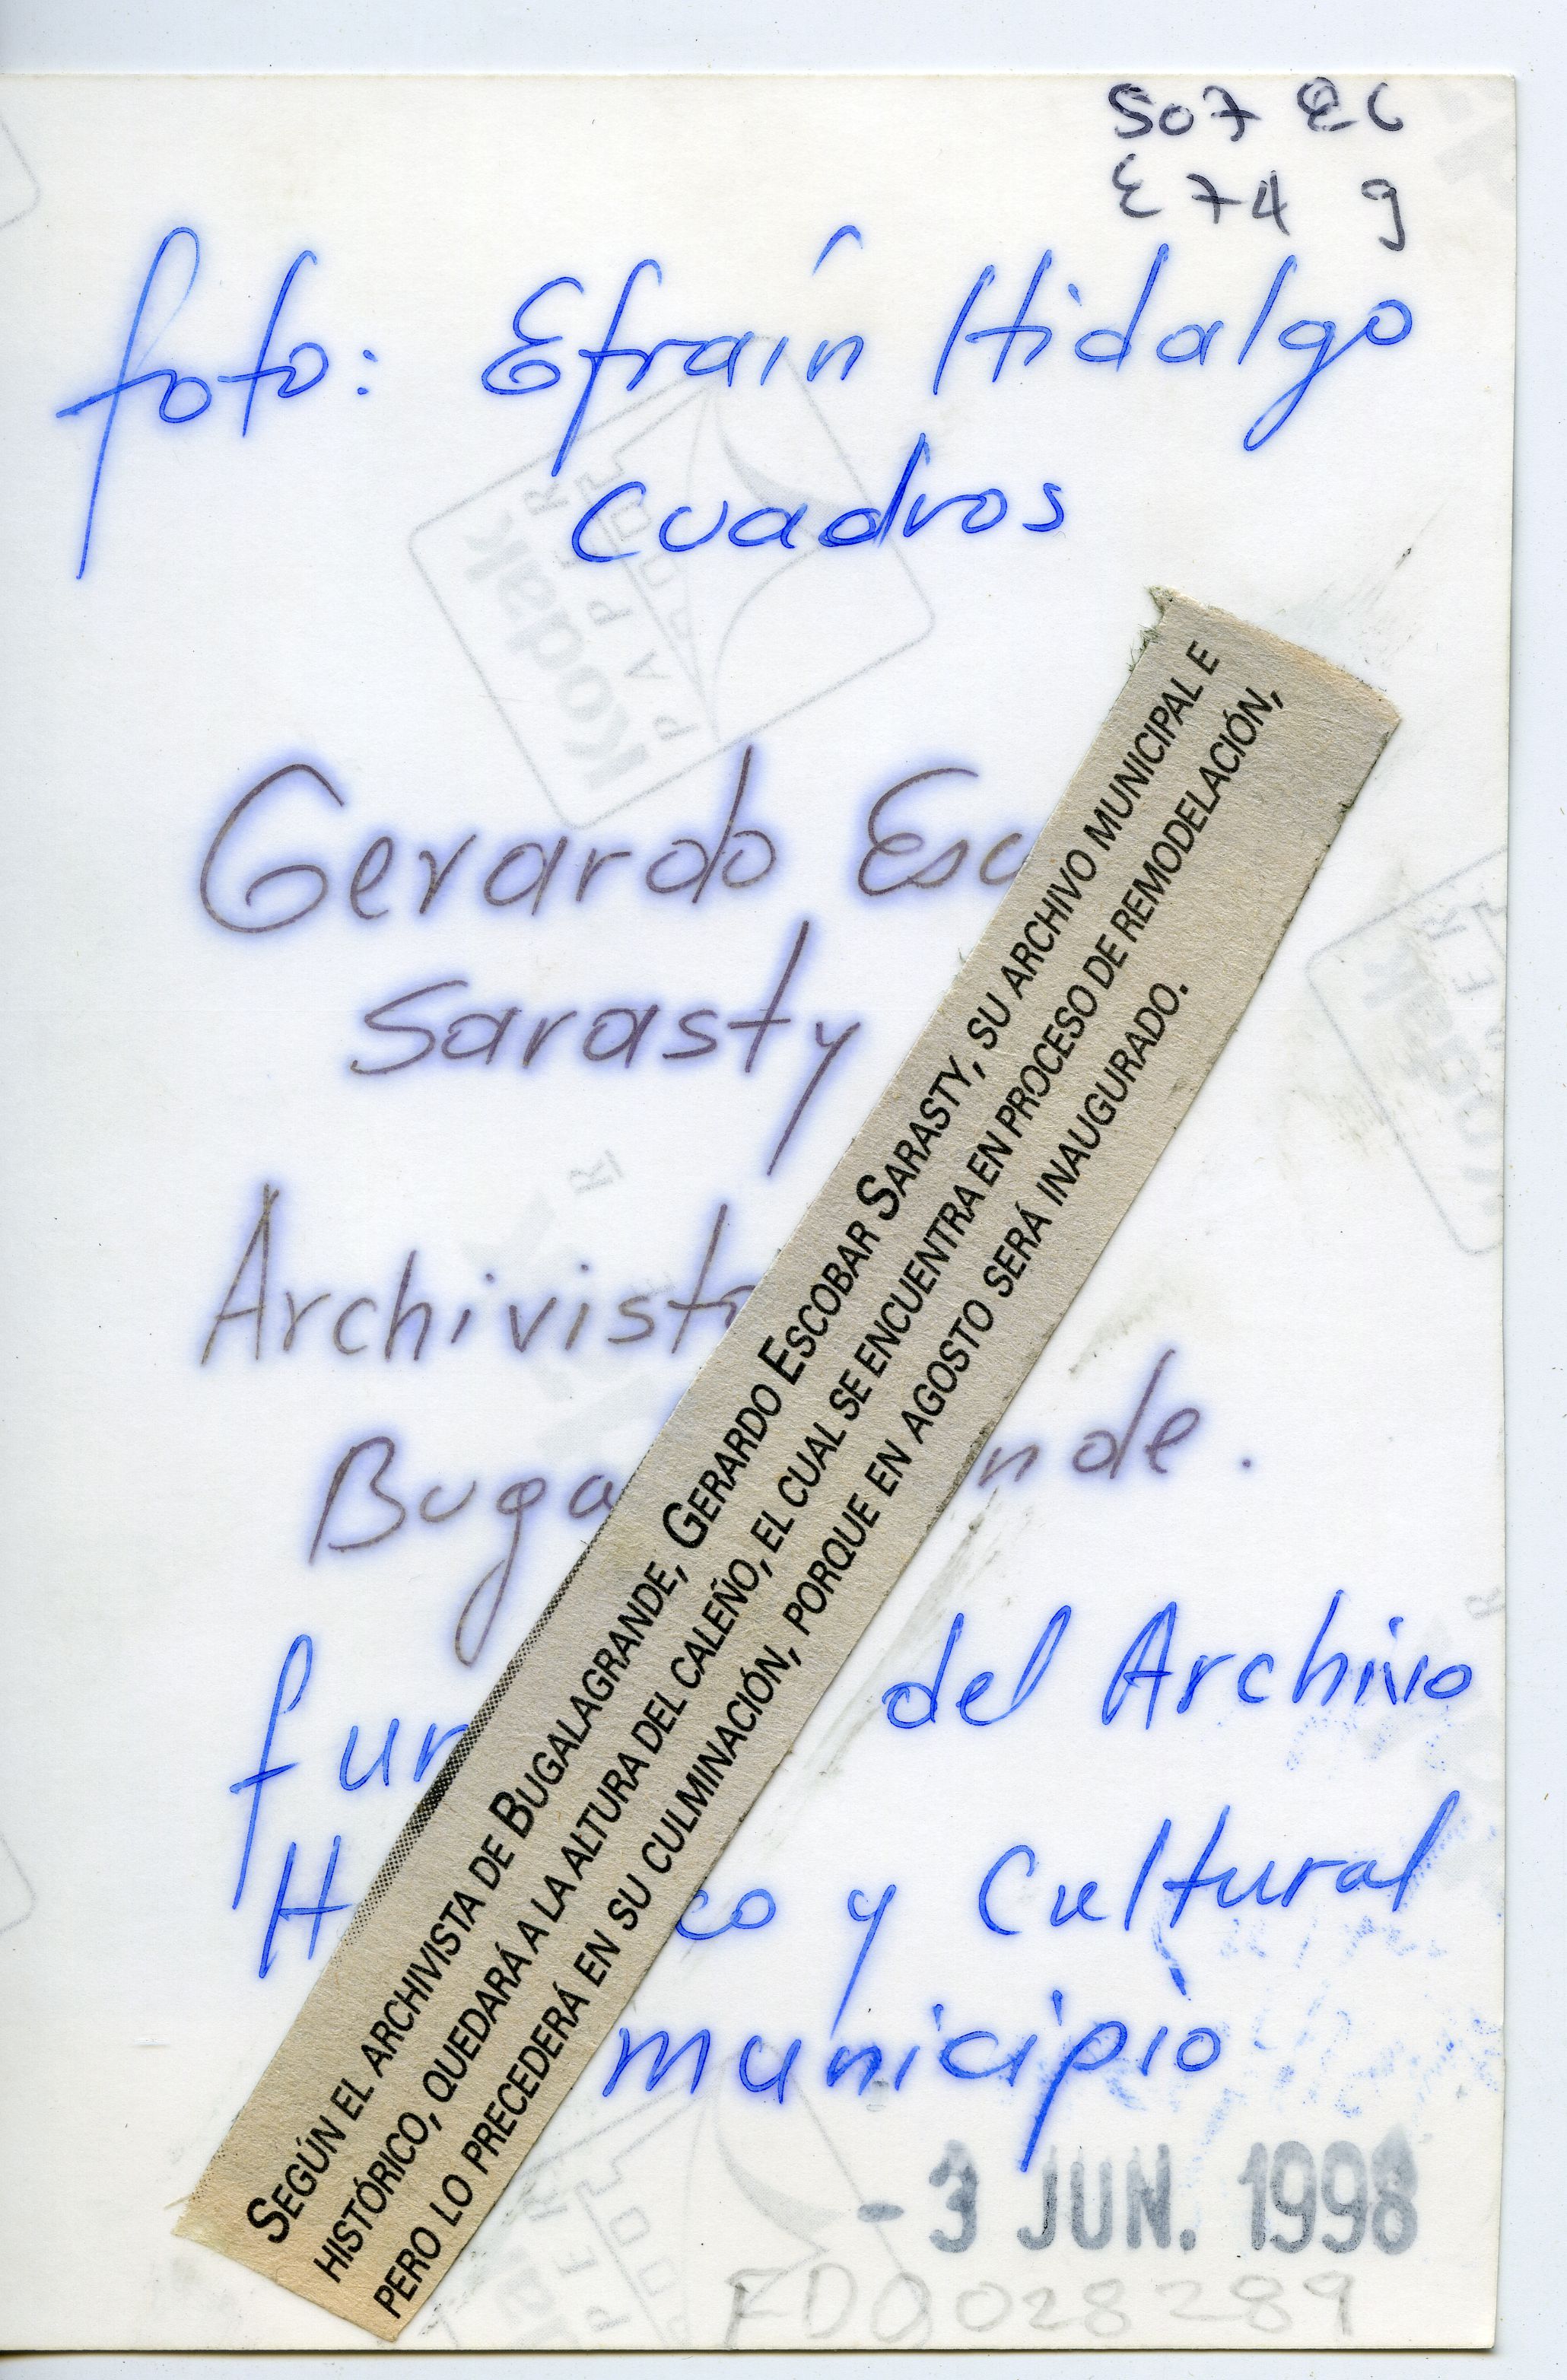 S07 26
E 74 9
foto: Efraín Hidalgo
Cuadros
Gerardo Esc
Sarasty
Archivista
Buga nde.
fun del Archivo
H co y Cultural
municipio
SEGÚN EL ARCHIVISTA DE BUGALAGRANDE, GERARDO ESCOBAR SARASTY, SU ARCHIVO MUNICIPAL E
HISTÓRICO, QUEDARÁ A LA ALTURA DEL CALEÑO, EL CUAL SE ENCUENTRA EN PROCESO DE REMODELACIÓN,
PERO LO PRECEDERÁ EN SU CULMINACIÓN, PORQUE EN AGOSTO SERÁ INAUGURADO.
- 3 JUN. 1998
FD0028289
Kodak
PAPER